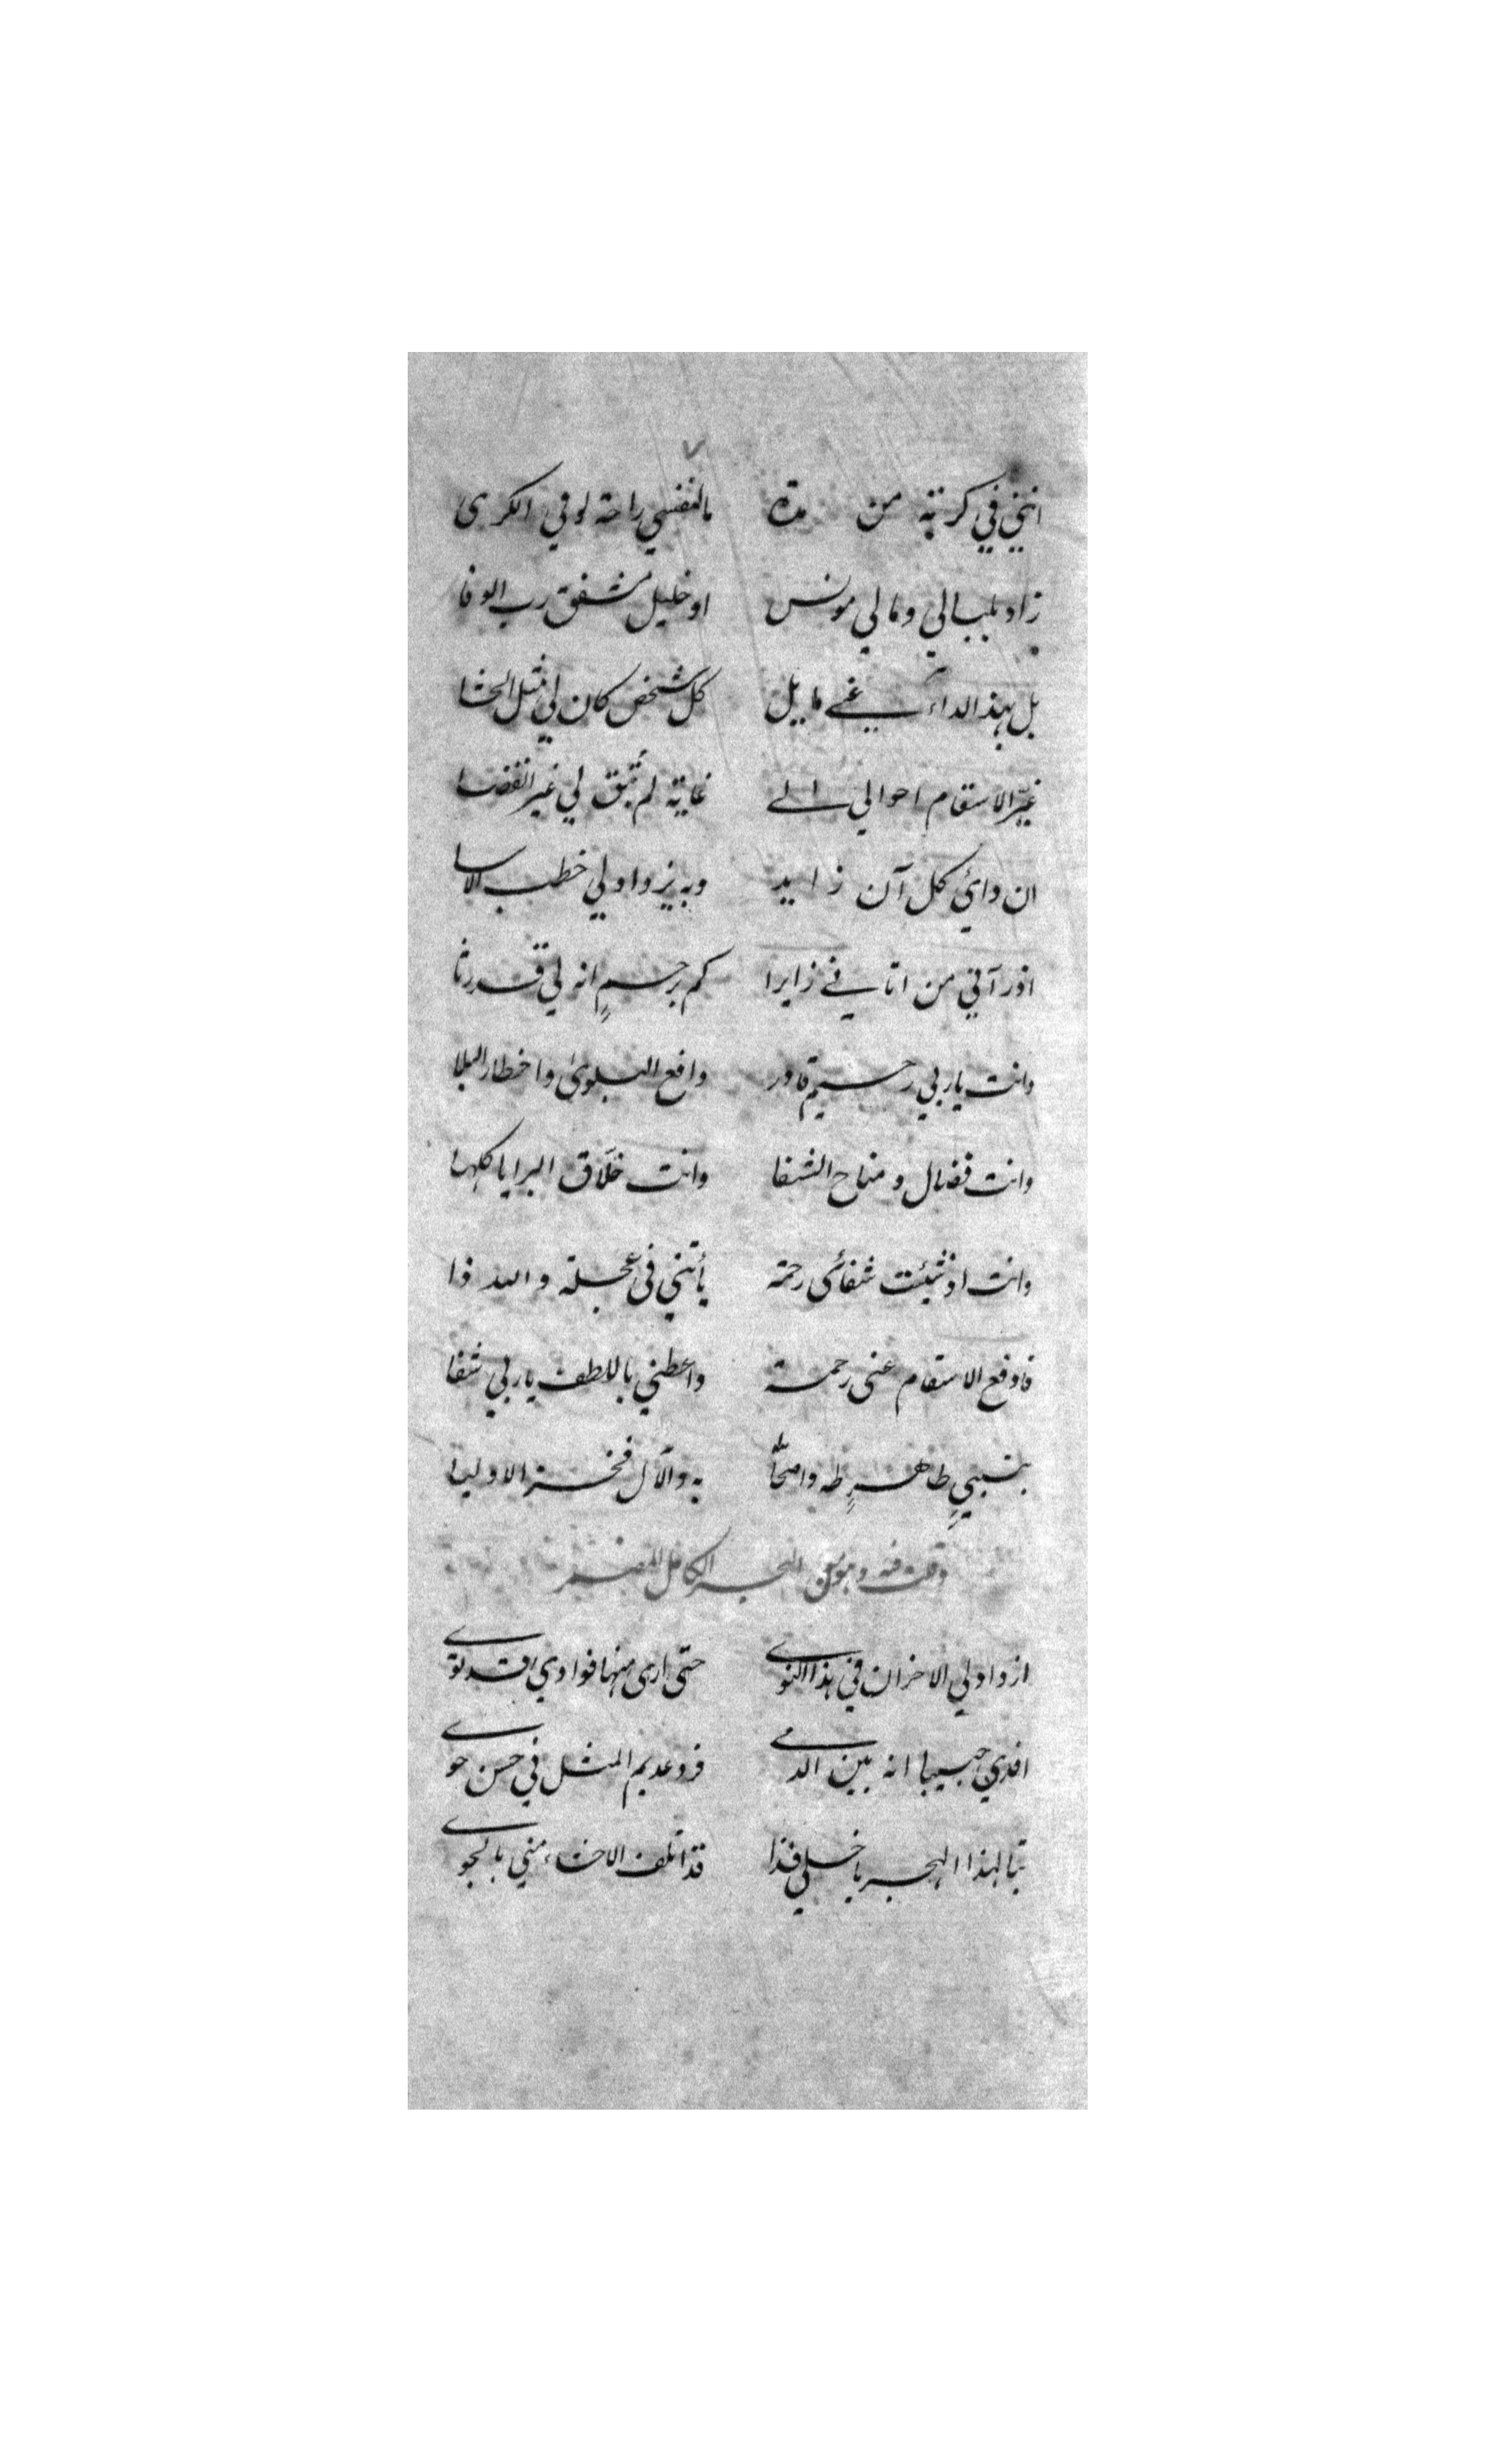 انني في كربة من مدة مالنفسي راحة لو في الكرى
زاد بلبالي ومالي مونس او خليل مشفق رب الوفا
بل بهذا الداء عني مايل كل شخص كان لي مثل الحشا
غيّر الاسقام احوالي الى غاية لم تُبق لي غير انقضا
ان دائي كل آن زايد وبه يزداد لي خطب الاسا
اذ رآني من اتاني زايرا كم برحسمٍ انه لي قد رثا
وانت يا ربي رحيم قادر دافع البلوى واخطار البلا
وانت فضال ومناح الشفا وانت خلّاق البرايا كلها
وانت اذ شئت شفائى رحمة يأتني فى عجلة والله ذا
فادفع الاسقام عنى رحمة واعطني باللطف يا ربي شفا
بنبيٍ طاهرٍ طه واصحا به والآل فخر الاوليا
وقلت فيه وهو من البحر الكامل المضمر
ازداد لي الاحزان في هذا النوى حتى ارى منها فوادي قد توى
افدي حبيبا انه بين الدمى فرد عديم المثل في حسن حوى
تبا لهذا الهجر يا خلي فذا قد اتلف الاحشاء مني بالجوى